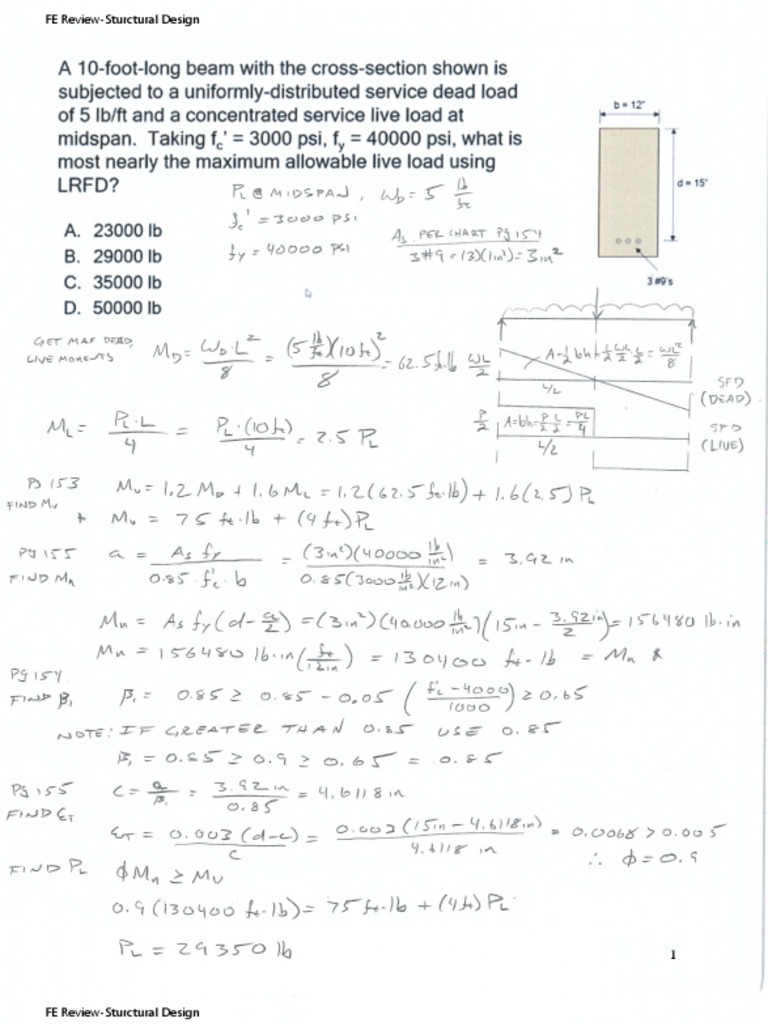 FE Review- Sturctural Design
A 10-foot-long beam with the cross-section shown is
subjected to a uniformly-distributed service dead load
of 5 lb/ft and a concentrated service live load at
midspan. Taking fc' = 3000 psi, fy = 40000 psi, what is
most nearly the maximum allowable live load using
LRFD?
b = 12"
d = 15"
3 #9's
PL @ MIDSPAN, ωD = 5 lb/ft
fc' = 3000 PSI
fy = 40000 PSI
AS PER CHART Pg 154
3#9 = (3)(1in²) = 3in²
A. 23000 lb
B. 29000 lb
C. 35000 lb
D. 50000 lb
GET MAX DEAD,
LIVE MOMENTS
MD = ωD·L²/8 = (5 lb/ft)(10ft)²/8 = 62.5ft·lb
ωL/2
A=½bh=½ ωL/2 · L/2 = ωL²/8
L/2
SFD
(DEAD)
ML = PL·L/4 = PL·(10ft)/4 = 2.5 PL
P/2
A=bh=P/2 · L/2 = PL/4
L/2
SFD
(LIVE)
Pg 153
FIND Mu
Mu = 1.2 MD + 1.6 ML = 1.2(62.5 ft·lb) + 1.6(2.5) PL
* Mu = 75 ft·lb + (4ft)PL
Pg 155
FIND Mn
a = As fy / 0.85 f'c · b = (3in²)(40000 lb/in²) / 0.85(3000 lb/in²)(12in) = 3.92 in
Mn = As fy (d - a/2) = (3in²)(40000 lb/in²)(15in - 3.92in/2) = 156480 lb·in
Mn = 156480 lb·in (ft/12in) = 130400 ft-lb = Mn *
Pg 154
FIND β1
β1 = 0.85 ≥ 0.85 - 0.05 (f'c - 4000 / 1000) ≥ 0.65
NOTE: IF GREATER THAN 0.85 USE 0.85
β1 = 0.85 ≥ 0.9 ≥ 0.65 = 0.85
Pg 155
FIND ƐT
C = a/β1 = 3.92 in / 0.85 = 4.6118 in
ƐT = 0.003 (d-c) / c = 0.003 (15in - 4.6118in) / 4.6118 in = 0.0068 > 0.005
∴ ϕ = 0.9
FIND PL
ϕMn ≥ Mu
0.9(130400 ft·lb) = 75 ft·lb + (4ft) PL
PL = 29350 lb
1
FE Review- Sturctural Design